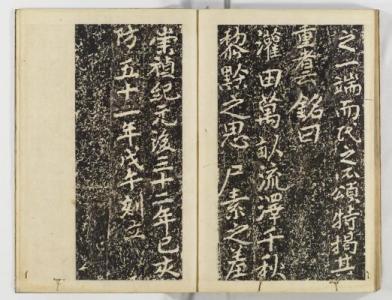 之一端而民之不頌特揭其
重 銘曰
灌田萬畝流澤千秋
黎黔之思尸素之羞
崇禎紀元後三十二年己亥
防五十一年戊午刻立